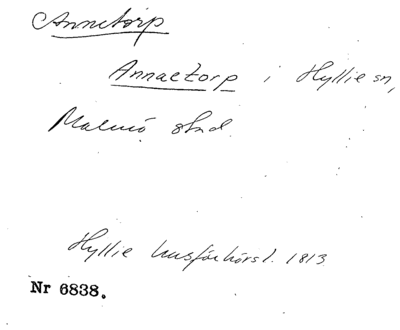 Annetorp
Annaetorp i Hyllie sn,
Malmö stad.
Hyllie husförhörsl. 1813
Nr 6838.